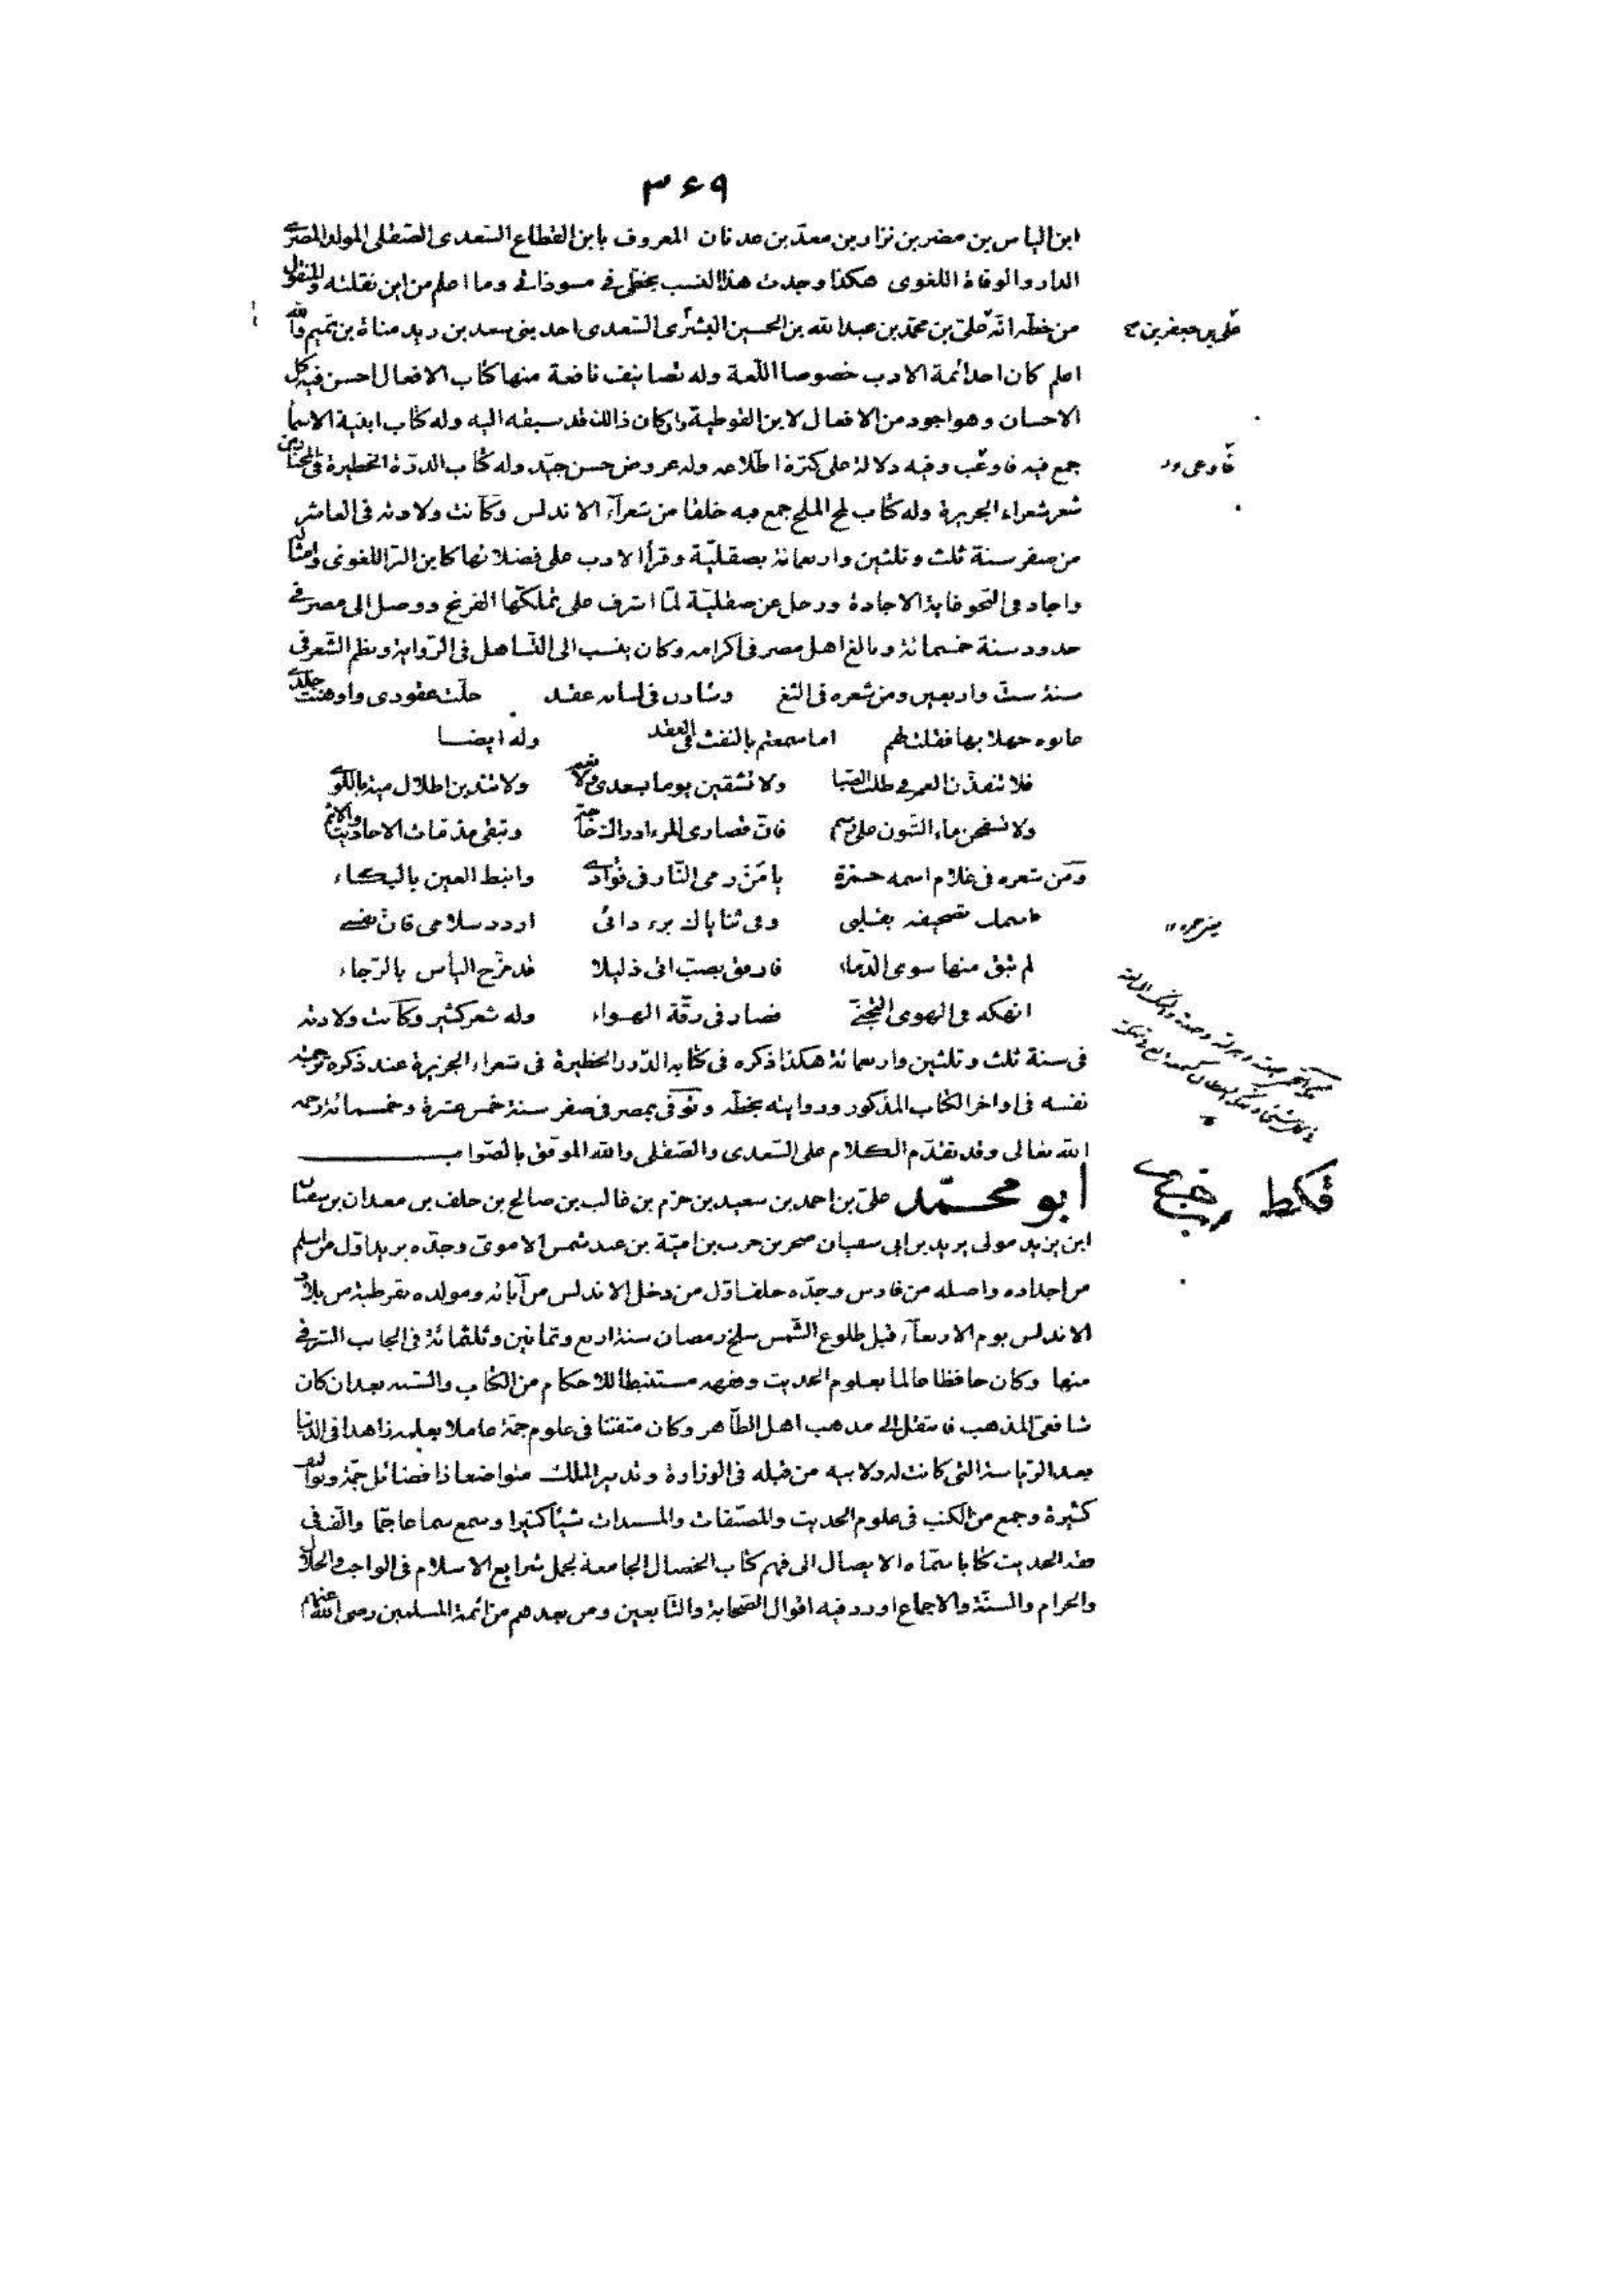 ۳۶۹
ابن الياس بن مضر بن نزار بن معدّ بن عدنان المعروف بابن القطاع السّعدى الصّقلى المولد المصرى
الدار والوفاة اللغوى هكذا وجدت هذا النسب بخطى فى مسوداتى وما اعلم من اين نقلته والمنقول
من خطّه انّه علىّ بن محمّد بن عبد الله بن الحسين الشنترى السّعدى احد بنى سعد بن زيد مناة بن تميم والله
علىّ بن جعفر بن
اعلم كان احد ائمة الادب خصوصا اللّغة وله تصانيف نافعة منها كتاب الافعال احسن فيه كل
الاحسان وهو اجود من الافعال لابن القوطية وان كان ذالك قد سبقه اليه وله كتاب ابنية الاسما
جمع فيه فاوعب وفيه دلالة على كثرة اطّلاعه وله عروض حسن جيّد وله كتاب الدرّة الخطيرة فى المختار من
فاوعى
شعر شعراء الجزيرة وله كتاب لمح الملح جمع فيه خلقا من شعرآء الاندلس وكانت ولادته فى العاشر
من صفر سنة ثلث وثلثين واربعمائة بصقليّة وقرأ الادب على فضلائها كابن البرّ اللغوى وامثاله
واجاد فى النّحو غاية الاجادة ورحل عن صقليّة لمّا اشرف على تملّكها الفرنج ووصل الى مصر فى
حدود سنة خمسمائة وبالغ اهل مصر فى اكرامه وكان ينسب الى التّساهل فى الرّواية ونظم الشّعر فى
سنة ستّ واربعين ومن شعره فى الثغ وشادن فى لسانه عقد حلّت عقودى واوهنت جلدى
عابوه جهلا بها فقلت لهم اما سمعتم بالنفث فى العقد وله ايضا
فلا تنفدنّ العمر فى طلب الصّبا ولا تشقين يوما بسعدى ولا نعم ولا تندبن اطلال ميّة باللّوى
ولا تسفحن ماء الشّون على رسم فانّ قصارى المرء ادراك حاجة وتبقى مذمّات الاحاديث والاثم
ومن شعره فى غلام اسمه حمزة يا من رمى النّار فى فؤادى وانبط العين بالبكاء
اسمك تصحيفه بقلبى وفى ثناياك برء دائى اردد سلامى فان نفسى
لم يبق منها سوى الذّماء فارفق بصبّ اتى ذليلا قد مزج الياس بالرّجاء
انهكه فى الهوى التّجنّى فصار فى رقّة الهواء وله شعر كثير وكانت ولادته
فى سنة ثلث وثلثين واربعمائة هكذا ذكره فى كتابه الدّرر الخطيرة فى شعراء الجزيرة عند ذكره ترجمة
نفسه فى اواخر الكتاب المذكور وروايته بخطّه وتوفّى بمصر فى صفر سنة خمس عشرة وخمسمائة رحمه
الله تعالى وقد تقدّم الكلام على السّعدى والصّقلى والله الموفّق بالصّواب
أبو محمّد علىّ بن احمد بن سعيد بن حزم بن غالب بن صالح بن خلف بن معدان بن سفيان
ابن يزيد مولى يزيد بن ابى سفيان صخر بن حرب بن اميّة بن عبد شمس الاموىّ وجدّه يزيد اوّل من اسلم
من اجداده واصله من فارس وجدّه خلف اوّل من دخل الاندلس من آبائه ومولده بقرطبة من بلاد
الاندلس يوم الاربعآء قبل طلوع الشّمس سلخ رمضان سنة اربع وثمانين وثلثمائة فى الجانب الشرقى
منها وكان حافظا عالما بعلوم الحديث وفقهه مستنبطا للاحكام من الكتاب والسّنه بعد ان كان
شافعىّ المذهب فانتقل الى مذهب اهل الظّاهر وكان متفنّنا فى علوم جمّة عاملا بعلمه زاهدا فى الدّنيا
بعد الرّياسة التى كانت له ولابيه من قبله فى الوزارة وتدبير الملك متواضعا ذا فضائل جمّة وتواليف
كثيرة وجمع من الكتب فى علوم الحديث والمصنّفات والمسندات شيئا كثيرا وسمع سماعا جمّا والّف فى
فقه الحديث كتابا سمّاه الايصال الى فهم كتاب الخصال الجامعة لجمل شرايع الاسلام فى الواجب والحلال
والحرام والسنّة والاجماع اورد فيه اقوال الصّحابة والتّابعين ومن بعدهم من ائمة المسلمين رضى الله عنهم